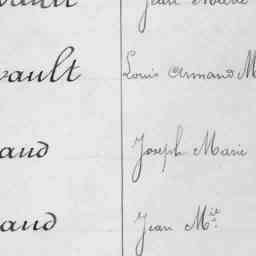 Jean Marie
vault Louis Armand M
aud Joseph Marie
aud Jean Mie